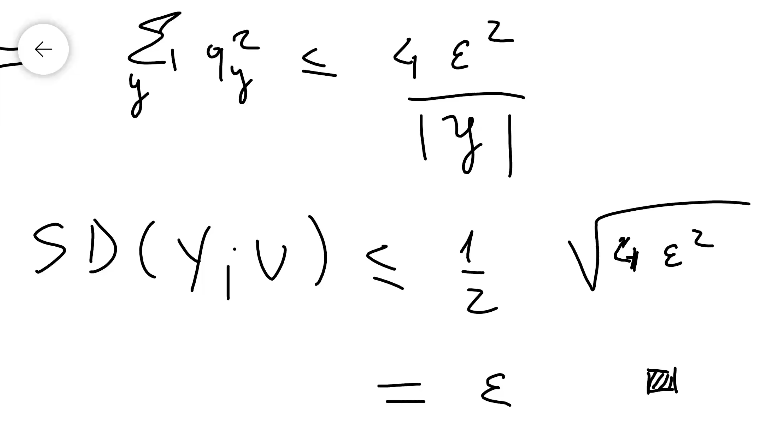 = Σ_y q_y² ≤ 4 ε² / |Y|
SD(Y; U) ≤ 1/2 √(4 ε²)
= ε